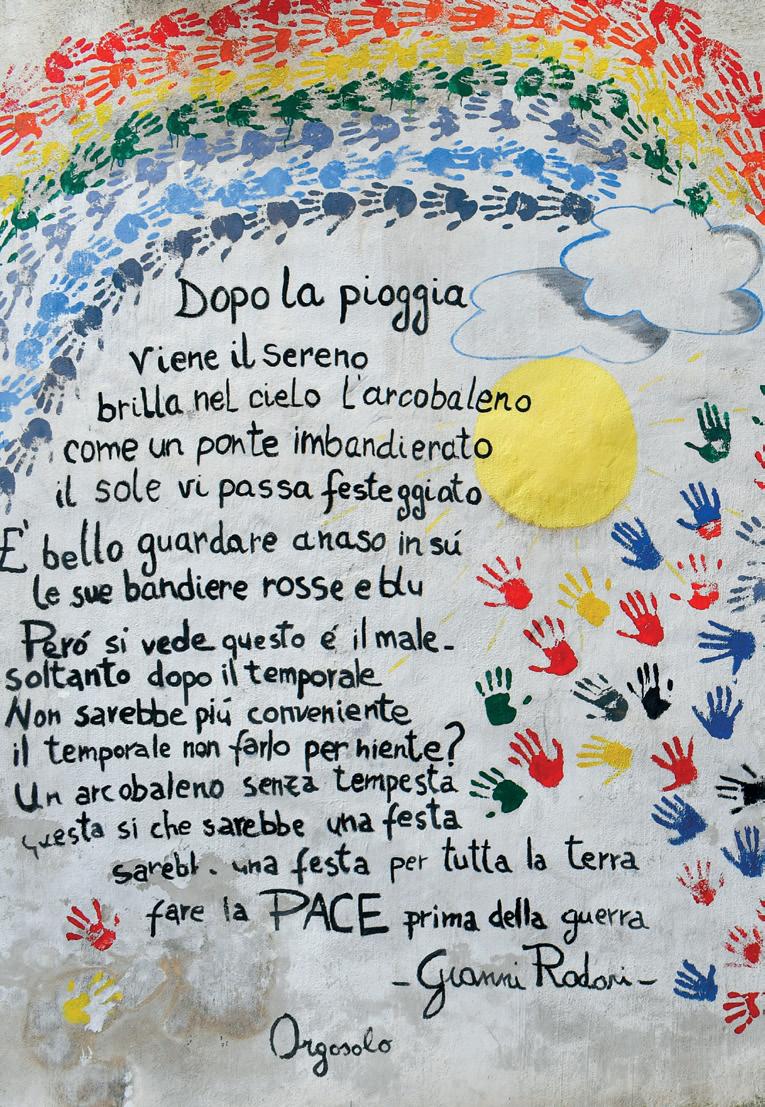 Dopo la pioggia
viene il sereno
brilla nel cielo l'arcobaleno
come un ponte imbandierato
il sole vi passa festeggiato
E' bello guardare a naso in sú
le sue bandiere rosse e blu
Peró si vede questo é il male-
soltanto dopo il temporale
Non sarebbe piú conveniente
il temporale non farlo per niente?
Un arcobaleno senza tempesta
questa si che sarebbe una festa
sarebb. una festa per tutta la terra
fare la PACE prima della guerra
-Gianni Rodari-
Orgosolo